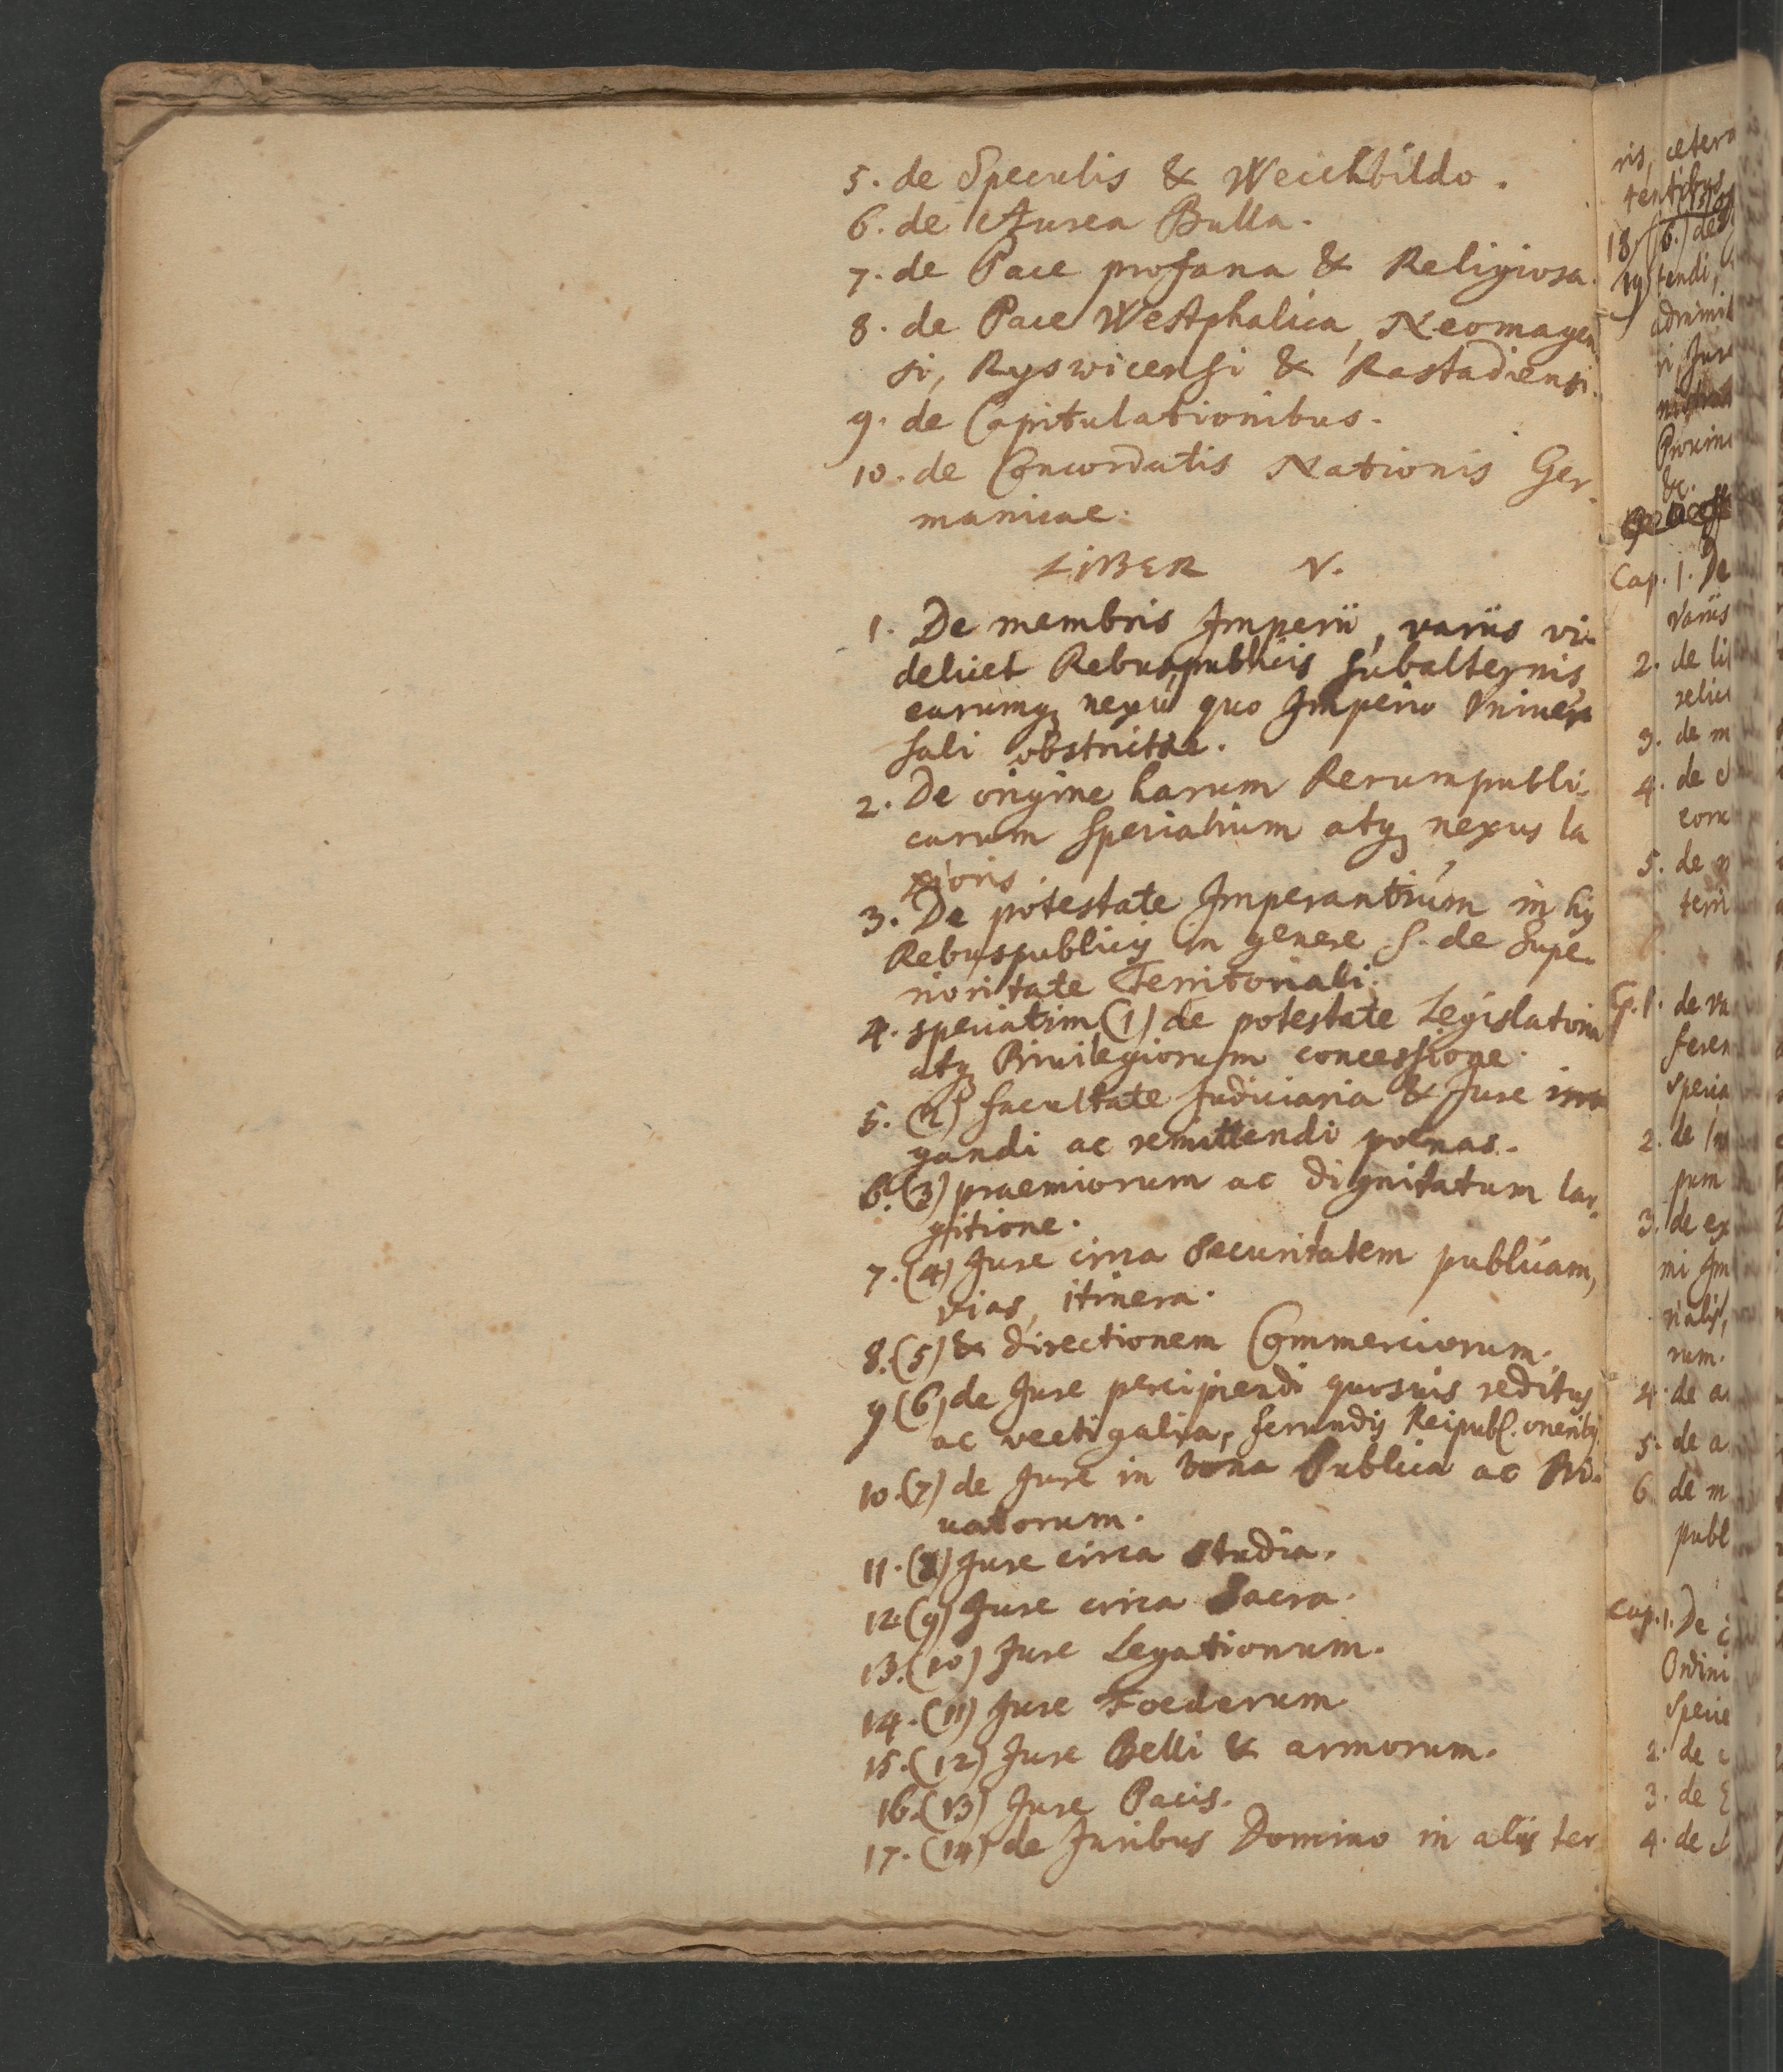 5. de Speculis & Weichbildo.
6. de Aurea Bulla.
7. de Pace profana & Religiosa.
8. de Pace Westphalica, Neomagen
si, Ryswicensi & Rastadiensi.
9. de Capitulationibus.
10. de Concordatis Nationis Ger-
manicae.
LIBER V.
1. De membris Imperii, variis vi-
delicet Rebuspublicis subalternis,
earumq; nexu quo Imperio Univer
sali obstrictae.
2. De origine harum Rerumpubli-
carum specialium atq; nexus la
xioris.
3. De potestate Imperantium in his
Rebuspublicis in genere s. de Supe-
rioritate Territoriali.
4. speciatim (1) de potestate Legislatoria
atq; Privilegiorum concessione.
5. (2) facultate Judiciaria & Jure irro
gandi ac remittendi poenas.
6. (3) praemiorum ac dignitatum lar-
gitione.
7. (4) Jure circa securitatem publicam,
vias, itinera.
8. (5) & directionem Commerciorum.
9 (6) de Jure percipiendi quosvis reditus
ac vectigalia, ferundis Reipubl. oneribq
10. (7) de Jure in bona Publica ac Pri-
uatorum.
11. (8) Jure circa studia.
12. (9) Jure circa Sacra.
13. (10) Jure Legationum.
14. (11) Jure Foederum.
15. (12) Jure Belli & armorum.
16. (13) Jure Pacis.
17. (14) de Juribus Domino in aliis ter
ris, cetera
18 (6.) de
19 tendi,
Cap. 1. De
variis
2. de li
relici
3. de m
4. de
5. de
terri
de va
feren
specia
2. de
pum
3. de ex
mi Im
rialis,
rum.
4. de a
5. de a
6 de m
publ
Cap. 1. De
Ordini
specie
2. de
3. de
4. de